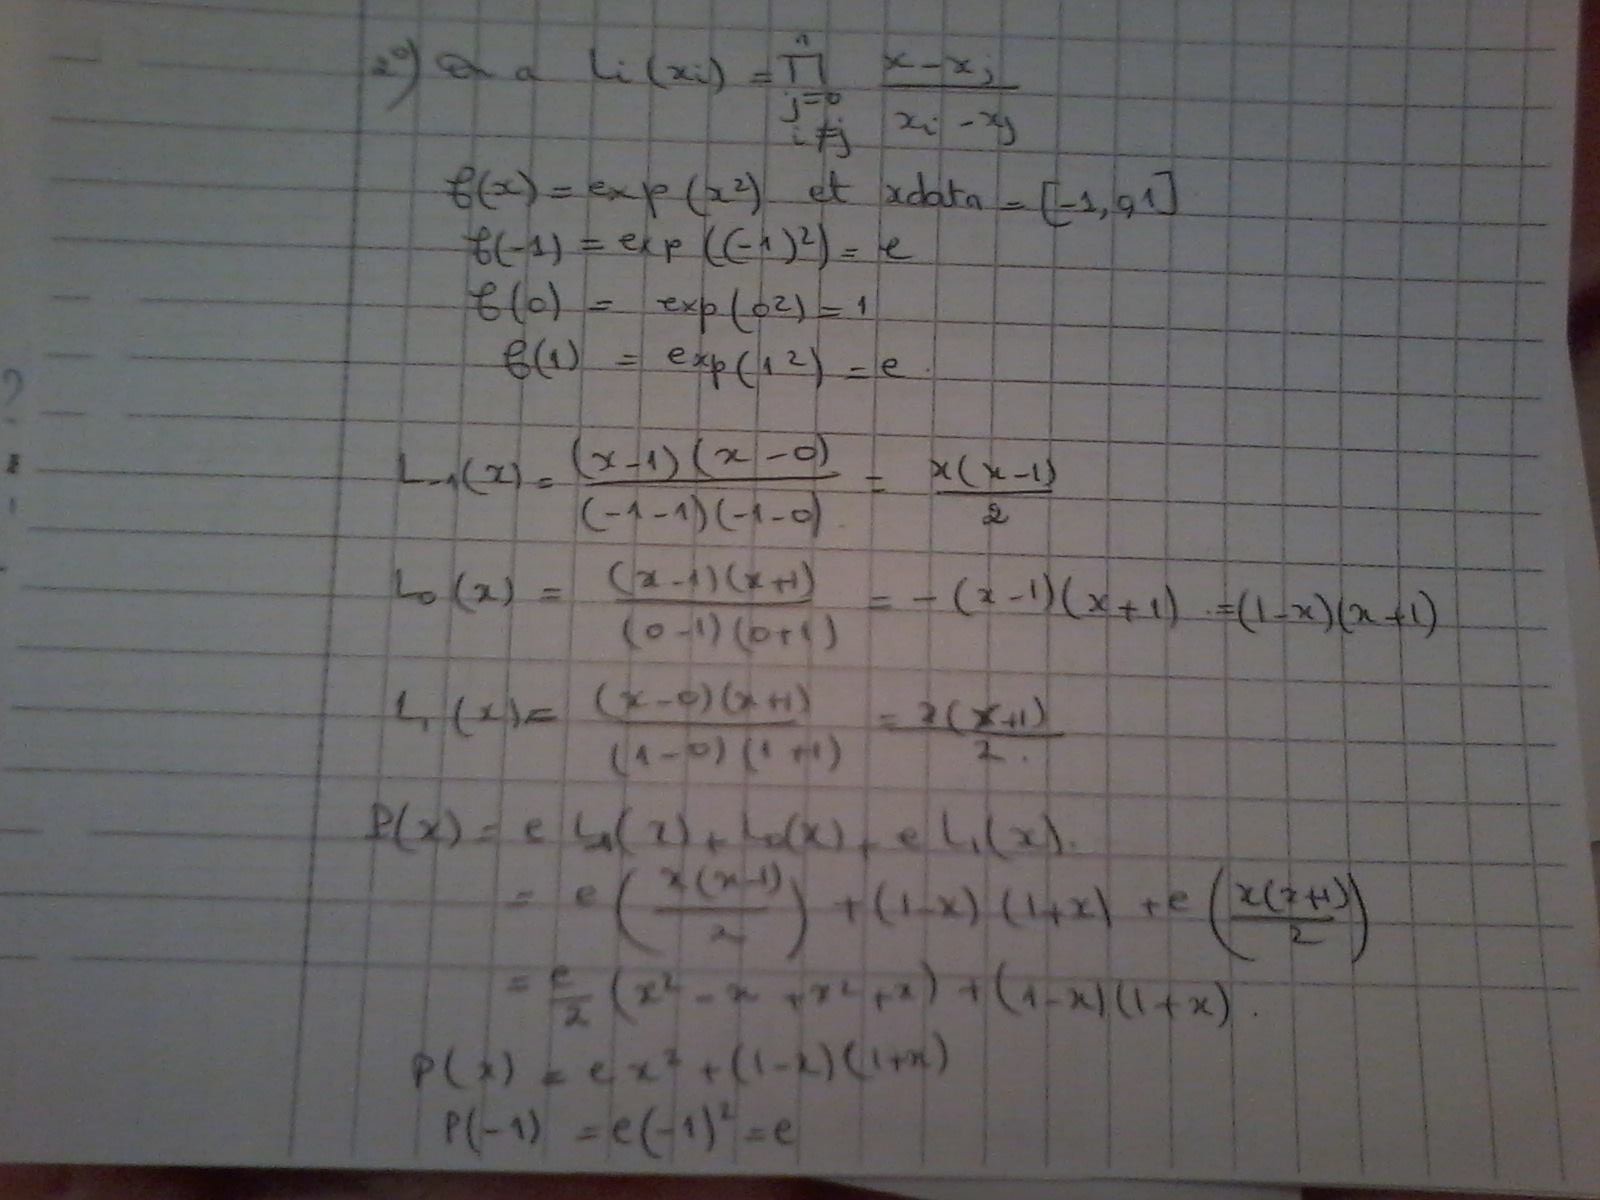 2°) On a Li(xi) = ∏ (j=0, i≠j)^n (x - xj)/(xi - xj)
f(x) = exp(x²) et xdata = [-1, 0, 1]
f(-1) = exp((-1)²) = e
f(0) = exp(0²) = 1
f(1) = exp(1²) = e.
L₋₁(x) = (x-1)(x-0)/((-1-1)(-1-0)) = x(x-1)/2
L₀(x) = (x-1)(x+1)/((0-1)(0+1)) = -(x-1)(x+1) = (1-x)(x+1)
L₁(x) = (x-0)(x+1)/((1-0)(1+1)) = x(x+1)/2.
P(x) = e L₋₁(x) + L₀(x) + e L₁(x).
= e(x(x-1)/2) + (1-x)(1+x) + e(x(x+1)/2)
= e/2 (x² - x + x² + x) + (1-x)(1+x).
P(x) = e x² + (1-x)(1+x)
P(-1) = e(-1)² = e